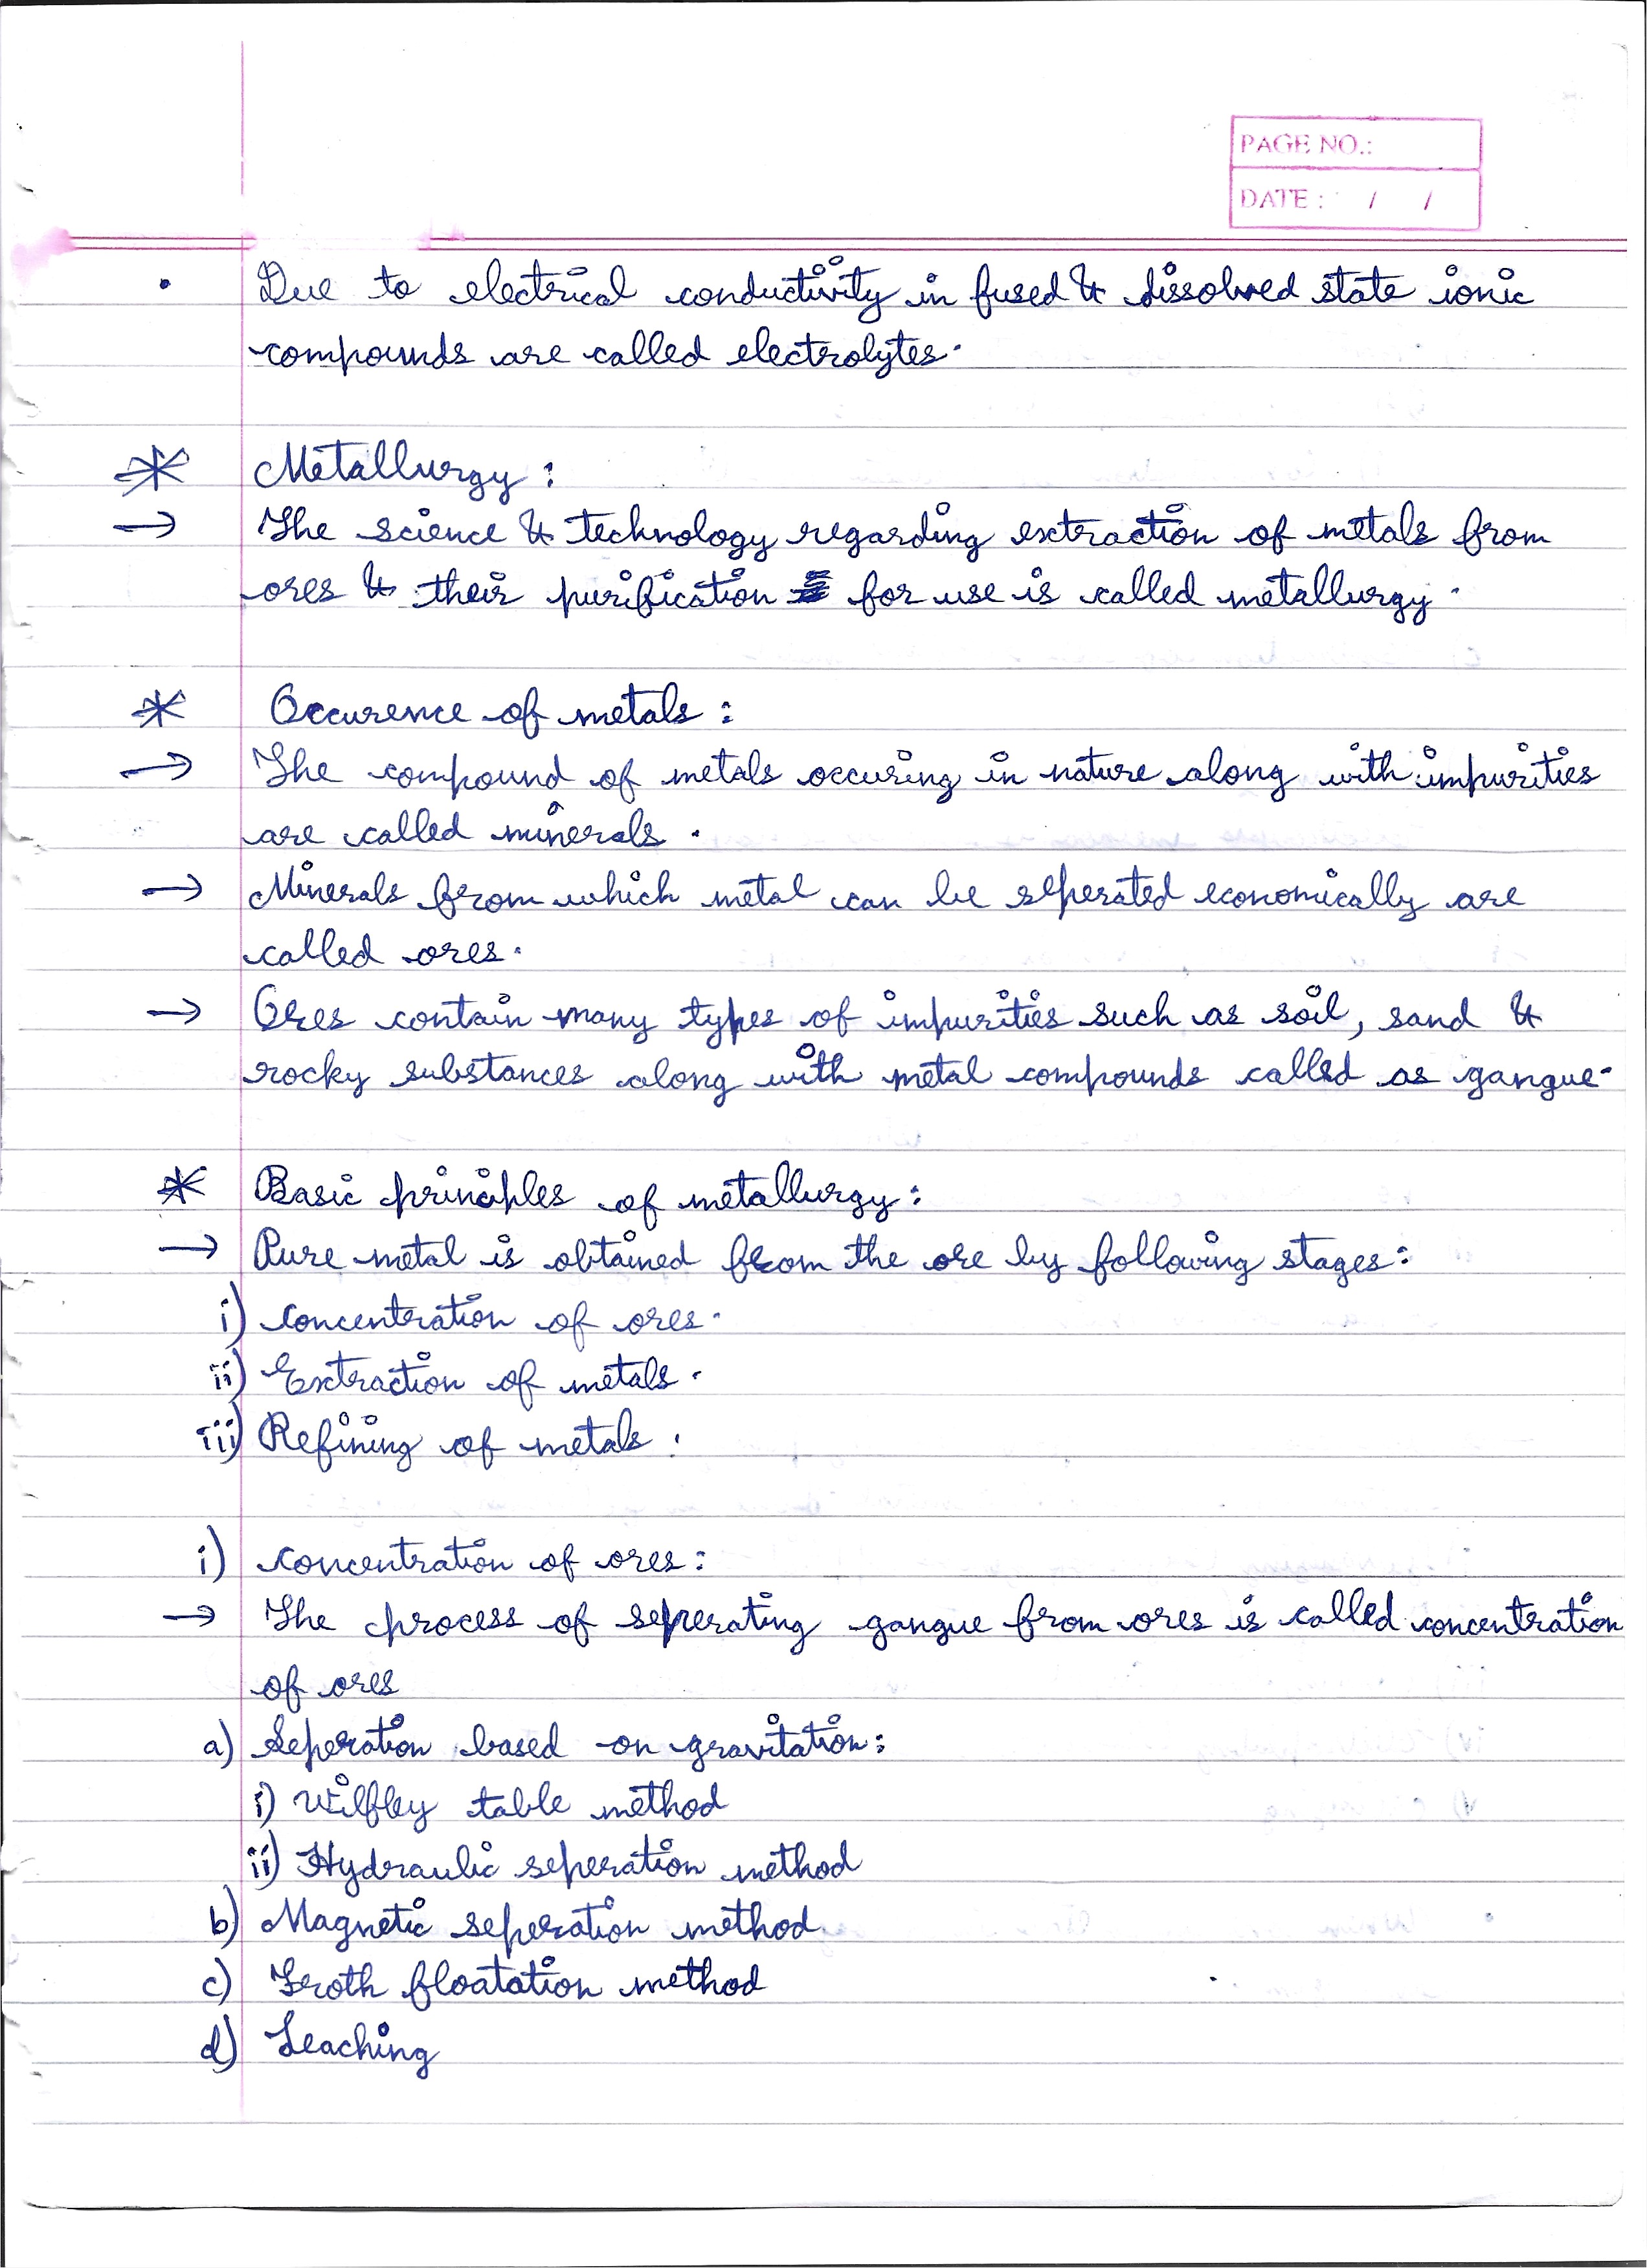 PAGE NO.:
DATE : / /
• Due to electrical conductivity in fused & dissolved state ionic
compounds are called electrolytes.
* Metallurgy :
→ The science & technology regarding extraction of metals from
ores & their purification for use is called metallurgy.
* Occurence of metals :
→ The compound of metals occuring in nature along with impurities
are called minerals.
→ Minerals from which metal can be seperated economically are
called ores.
→ Ores contain many types of impurities such as soil, sand &
rocky substances along with metal compounds called as gangue.
* Basic principles of metallurgy :
→ Pure metal is obtained from the ore by following stages :
i) Concentration of ores.
ii) Extraction of metals.
iii) Refining of metals.
i) Concentration of ores :
→ The process of seperating gangue from ores is called concentration
of ores
a) Seperation based on gravitation :
i) Wilfley table method
ii) Hydraulic seperation method
b) Magnetic seperation method
c) Froth floatation method
d) Leaching